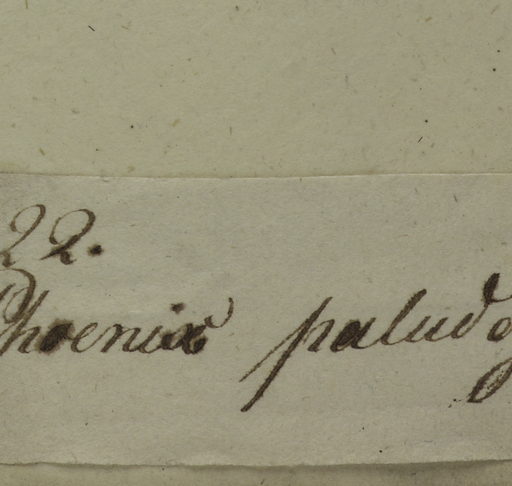 22.
Phoenix paludo